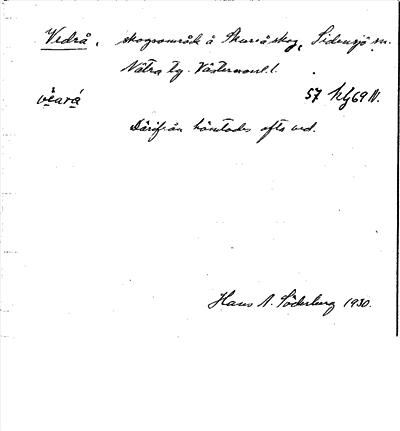 Vedrå, skogsområde å Skuruåskog, Sidensjö sn.
Nätra tg. Västernorrl. l.
vèará 57 Hg 69 N.
Därifrån hämtades ofta ved.
Hans A. Söderberg 1930.